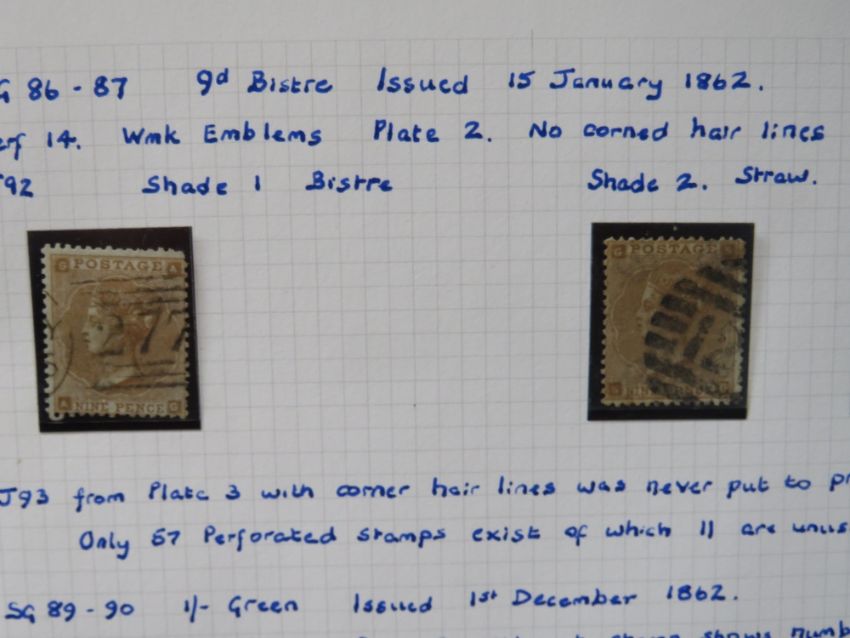 G 86 - 87 9d Bistre Issued 15 January 1862.
erf 14. Wmk Emblems Plate 2. No corned hair lines
92 Shade 1 Bistre Shade 2. Straw.
G POSTAGE A
277
A NINE PENCE G
G POSTAGE
J93 from Plate 3 with corner hair lines was never put to pr
Only 57 Perforated stamps exist of which 11 are unus
SG 89 - 90 1/- Green Issued 1st December 1862.